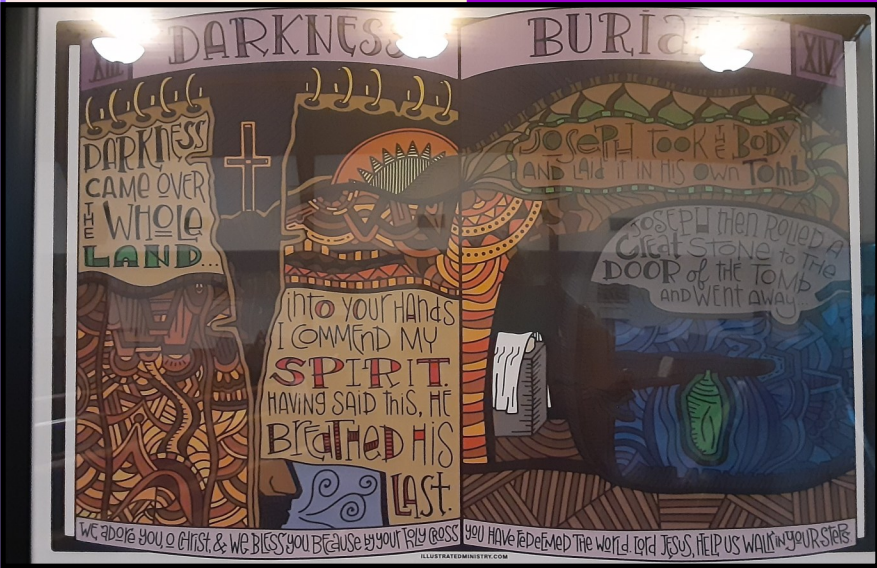 XIII
DARKNESS
DARKNESS
CAME OVER
THE WHOLE
LAND...
INTO YOUR HANDS
I COMMEND MY
SPIRIT.
HAVING SAID THIS, HE
BREATHED HIS
LAST.
BURIAL
XIV
JOSEPH TOOK THE BODY
AND LAID IT IN HIS OWN TOMB
JOSEPH THEN ROLLED A
GREAT STONE TO THE
DOOR OF THE TOMB
AND WENT AWAY...
WE ADORE YOU, O CHRIST, & WE BLESS YOU BECAUSE BY YOUR HOLY CROSS YOU HAVE REDEEMED THE WORLD. LORD JESUS, HELP US WALK IN YOUR STEPS.
ILLUSTRATEDMINISTRY.COM